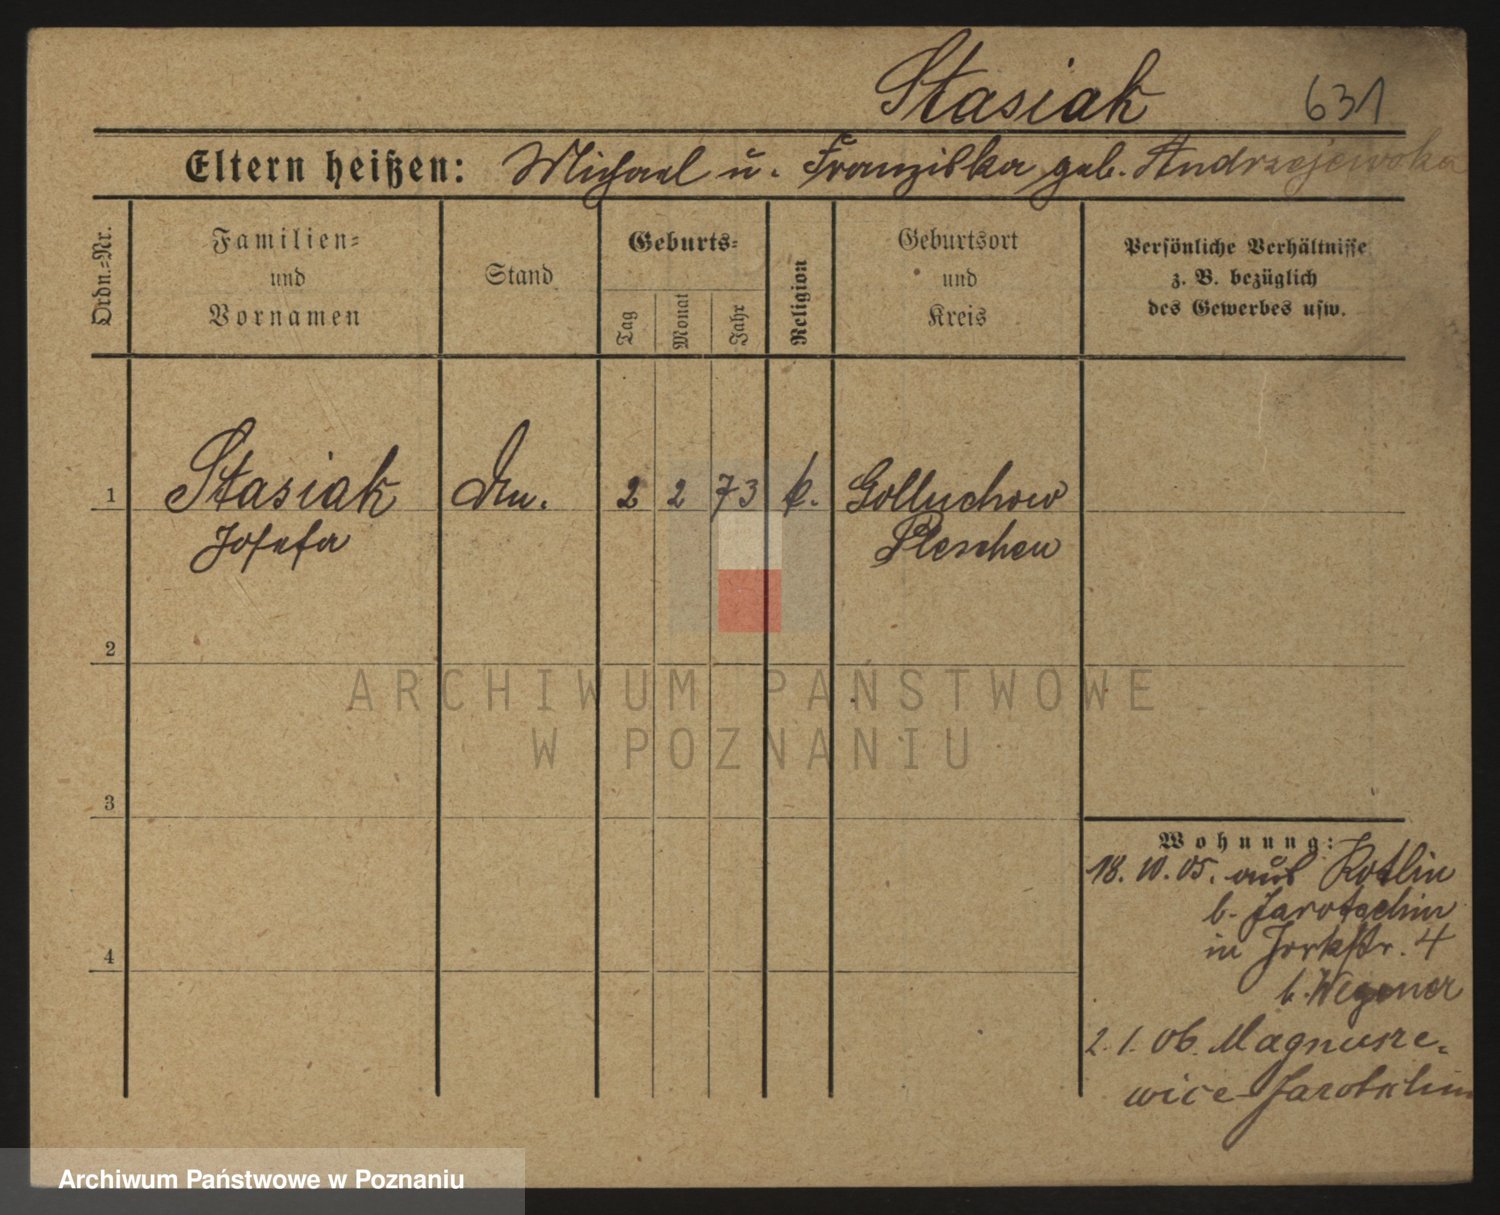 Stasiak 631
Eltern heißen: Michael u. Franziska geb. Andrzejewska
Ordn.-Nr.
Familien-
und
Vornamen
Stand
Geburts-
Tag
Monat
Jahr
Religion
Geburtsort
und
Kreis
Persönliche Verhältnisse
z. B. bezüglich
des Gewerbes usw.
1 Stasiak 2 2 73 k. Golluchow
Josefa Pleschen
2
ARCHIWUM PAŃSTWOWE
W POZNANIU
3
Wohnung:
18. 10. 05. aus Kotlin
b. Jarotschin
in Jorkstr. 4
b. Wegener
4
2. 1. 06. Magnusze-
wice Jarotschin
Archiwum Państwowe w Poznaniu